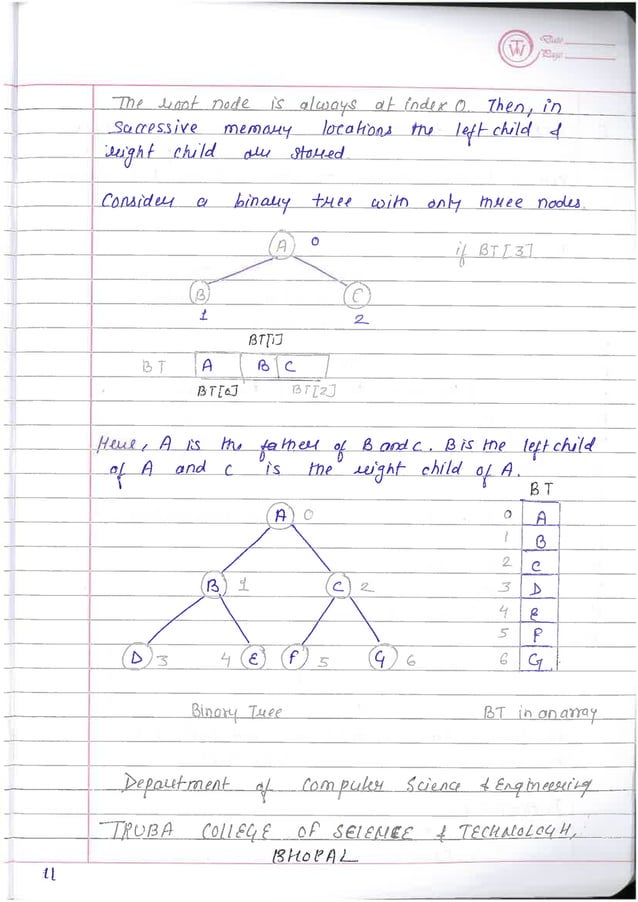 Date
Page
The root node is always at index 0. Then, in
successive memory locations the left child &
right child are stored.
Consider a binary tree with only three nodes.
A 0
if BT[3]
B C
1 2
BT[1]
BT A B C
BT[0] BT[2]
Here, A is the father of B and C. B is the left child
of A and C is the right child of A.
BT
A 0
0 A
1 B
2 C
B 1 C 2
3 D
4 E
5 F
D 3 4 E F 5 G 6
6 G
Binary Tree BT in an array
Department of Computer Science & Engineering
TRUBA COLLEGE OF SCIENCE & TECHNOLOGY,
BHOPAL
11